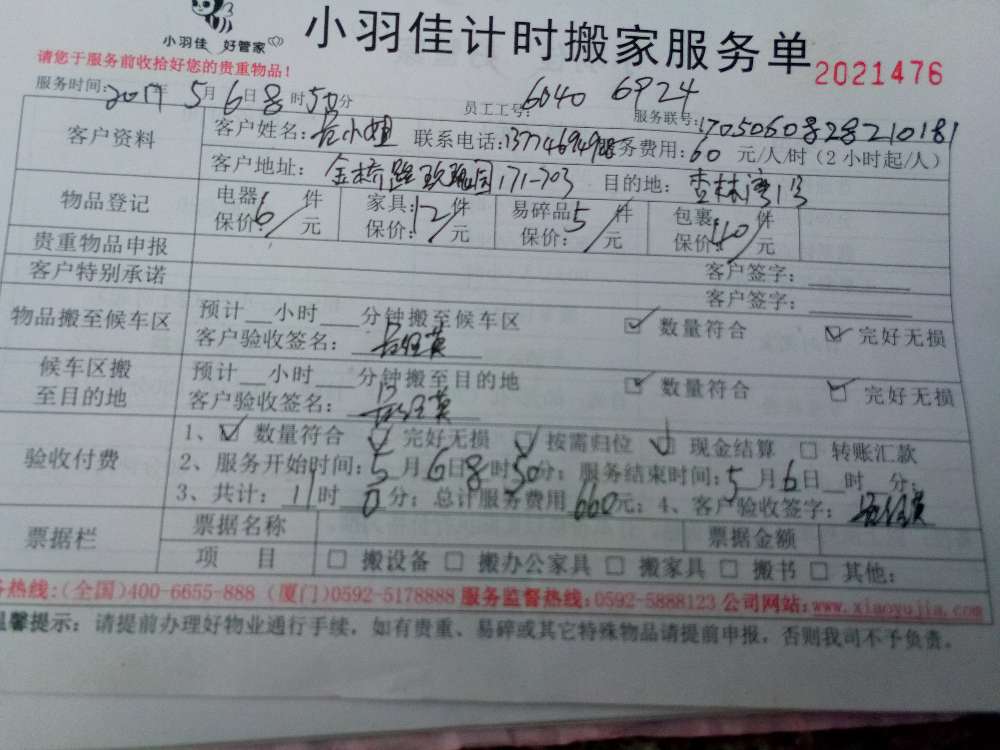 小羽佳 好管家
小羽佳计时搬家服务单 2021476
请您于服务前收拾好您的贵重物品!
服务时间: 2017年 5月 6日 8时 50分 员工工号: 6040 6924 服务联号: 170506082821 0181
客户资料
客户姓名: 小姐 联系电话: 服务费用: 60 元/人/时 (2小时起/人)
客户地址: 金桥路玫瑰园171-703 目的地: 杏林湾1号
物品登记
电器 6 件 家具: 12 件 易碎品 5 件 包裹: 40 件
保价: / 元 保价: / 元 保价: / 元 保价: / 元
贵重物品申报 客户签字:
客户特别承诺 客户签字:
物品搬至候车区
预计__小时___分钟搬至候车区 ☑ 数量符合 ☑ 完好无损
客户验收签名:
候车区搬至目的地
预计__小时___分钟搬至目的地 ☑ 数量符合 ☑ 完好无损
客户验收签名:
验收付费
1、☑ 数量符合 ☑ 完好无损 ☑ 按需归位 ☑ 现金结算 □ 转账汇款
2、服务开始时间: 5月6日8时50分; 服务结束时间: 5月6日__时 分;
3、共计: 11时 0分; 总计服务费用 660元; 4、客户验收签字:
票据栏
票据名称 票据金额
项 目 □ 搬设备 □ 搬办公家具 □ 搬家具 □ 搬书 □ 其他:
务热线:(全国)400-6655-888 (厦门)0592-5178888 服务监督热线:0592-5888123 公司网站:www.xiaoyujia.com
温馨提示: 请提前办理好物业通行手续, 如有贵重、易碎或其它特殊物品请提前申报, 否则我司不予负责。